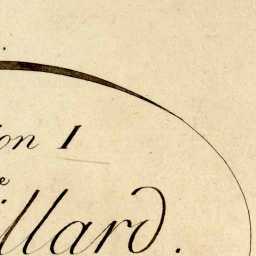 ion I
e
illard.